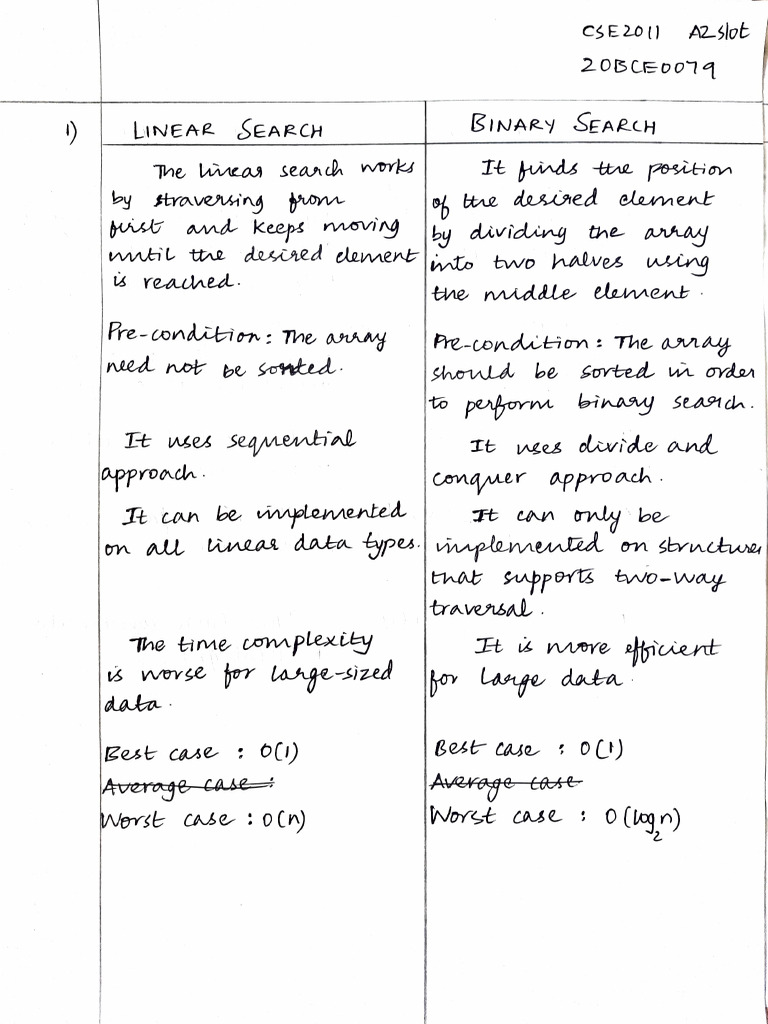 CSE2011 A2 slot
20BCE0079
1)
LINEAR SEARCH
The linear search works
by straversing from
first and keeps moving
until the desired element
is reached.
Pre-condition: The array
need not be sorted.
It uses sequential
approach.
It can be implemented
on all linear data types.
The time complexity
is worse for large-sized
data.
Best case : O(1)
Average case :
Worst case : O(n)
BINARY SEARCH
It finds the position
of the desired element
by dividing the array
into two halves using
the middle element.
Pre-condition: The array
should be sorted in order
to perform binary search.
It uses divide and
conquer approach.
It can only be
implemented on structures
that supports two-way
traversal.
It is more efficient
for large data.
Best case : O(1)
Average case
Worst case : O(log₂n)